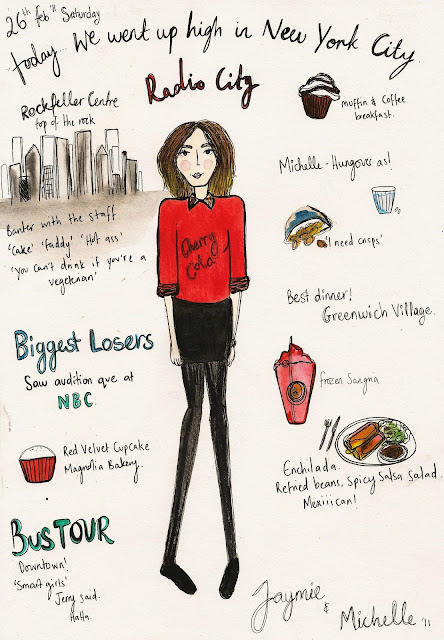 26th feb '11 Saturday
Today We went up high in New York City
Radio City
Rockfeller Centre
top of the rock
Banter with the staff
'Cake' 'Faddy' 'Hot ass'
'You can't drink if you're a
vegetarian'
Biggest Losers
Saw audition que at
NBC.
Red Velvet Cupcake
Magnolia Bakery.
Bus TOUR
Downtown!
'Smart girls'
Jerry said.
HaHa.
Cherry
Cola
muffin & Coffee
breakfast.
Michelle - Hungover as!
'I need crisps'
Best dinner!
Greenwich Village.
frozen Sangria
Enchilada.
Refried beans, Spicy Salsa salad.
Mexiiican!
Jaymie
&
Michelle '11